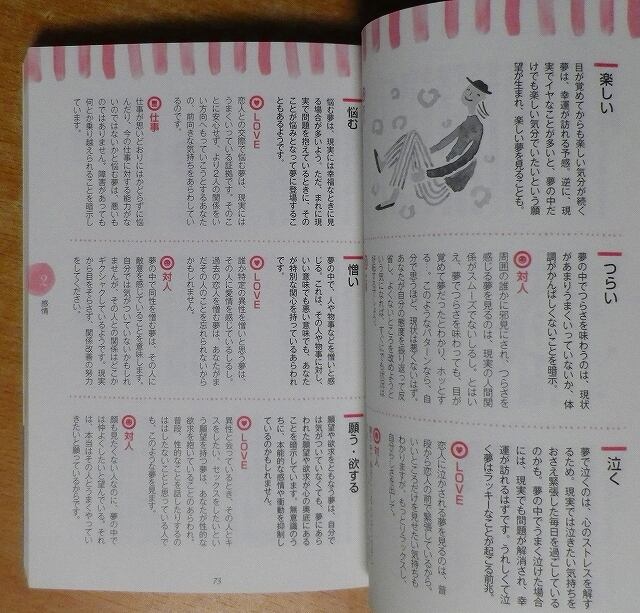 楽しい
目が覚めてからも楽しい気分が続く
夢は、幸運が訪れる予感。逆に、現
実でイヤなことが多いと、夢の中だ
けでも楽しい気分でいたいという願
望が生まれ、楽しい夢を見ることも。
つらい
夢の中でつらさを味わうのは、現状
があまりうまくいっていないか、体
調がかんばしくないことを暗示。
対人
周囲の誰かに邪見にされ、つらさを
感じる夢を見るのは、現実の人間関
係がスムーズでないしるし。とはい
え、夢でつらさを味わっても、目が
覚めて夢だったとわかり、ホッとす
る。このようなパターンなら、自
分で思うほど、現状は悪くないはず。
あなたが自分の態度を振り返って反
省し、よくないところを改めようと
泣く
夢で泣くのは、心のストレスを解す
るため。現実では泣きたい気持ちを
おさえ緊張した毎日を過ごしている
のかも。夢の中でうまく泣けた場合
には、現実でも問題が解消され、幸
運が訪れるはずです。うれしくて泣
く夢はラッキーなことが起こる前兆。
LOVE
恋人に泣かされる夢を見るのは、普
段から恋人の前で緊張しているから。
いいところだけを見せたい気持ちも
わかりますが、もっとリラックスし、
対人
悩む
悩む夢は、現実には幸福なときに見
る場合が多いよう。ただ、まれに現
実で問題を抱えているときに、その
ことが悩みとなって夢に登場するこ
ともあるようです。
LOVE
恋人との交際で悩む夢は、現実には
うまくいっている証拠です。そのこ
とに安心せず、より2人の関係をい
い方向へもっていこうとするあなた
の、前向きな気持ちをあらわしてい
るのです。
仕事
仕事が思いどおりにはかどらずに悩
んだり、今の仕事に対する能力がな
いのではないかと悩む夢は、悪いも
のではありません。障害があっても
何とか乗り越えられることを暗示し
ています。
憎い
夢の中で、人や物事などを憎いと感
じる。これは、その人や物事に対し、
いい意味でも悪い意味でも、あなた
が特別な関心を持っているあらわれ
です。
LOVE
誰か特定の異性を憎いと思う夢は、
その人に愛情を感じているしるし。
過去の恋人を憎む夢は、あなたがま
だその人のことを忘れられないから
かもしれません。
対人
夢の中で同性を憎む夢は、その人に
敵意を感じていることを意味します。
自分では気がついていないかもしれ
ませんが、その人との関係はどこか
ギクシャクしているようです。現実
から目をそらさず、関係改善の努力
をしてください。
願う・欲する
願望や欲求をともなう夢は、自分で
は気がついていなくても、夢にあら
われた願望や欲求が心の奥底にある
ことを暗示しています。無意識のう
ちに、本能的な感情や衝動を抑制し
ているのかもしれません。
LOVE
異性と会っているとき、その人とキ
スをしたい、セックスをしたいとい
う願望を持つ夢は、あなたが性的な
欲求を抱いていることのあらわれ。
普段、性的なことを話したりするの
ははしたないことと思っている人で
も、このような夢を見ます。
対人
顔も見たくない人なのに、夢の中で
は仲よくしたいと望んでいる。それ
は、本当はその人とうまくやってい
きたいと願っているからです。
2
感情
73